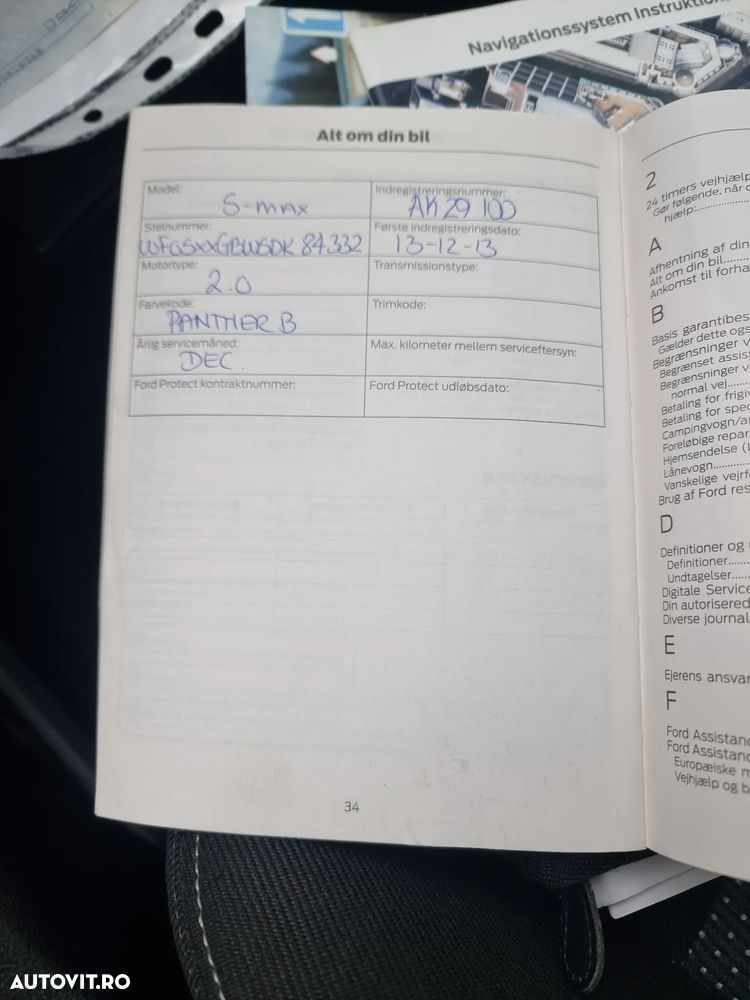 Navigationssystem Instruktion
Alt om din bil
Model:
S-max
Indregistreringsnummer:
AK 29 100
Stelnummer:
WF0SXXGBWSDK 84332
Første indregistreringsdato:
13-12-13
Motortype:
2.0
Transmissionstype:
Farvekode:
PANTHER B
Trimkode:
Årlig servicemåned:
DEC.
Max. kilometer mellem serviceeftersyn:
Ford Protect kontraktnummer:
Ford Protect udløbsdato:
34
2
24 timers vejhjælp
Gør følgende, når d
hjælp:
A
Afhentning af din
Alt om din bil
Ankomst til forha
B
Basis garantibes
Gælder dette ogs
Begrænsninger v
Begrænset assis
Begrænsninger ve
normal vej
Betaling for frigiv
Betaling for spec
Campingvogn/an
Foreløbige repar
Hjemsendelse (k
Lånevogn
Vanskelige vejrf
Brug af Ford res
D
Definitioner og
Definitioner
Undtagelser
Digitale Service
Din autorisered
Diverse journal
E
Ejerens ansvar
F
Ford Assistanc
Ford Assistanc
Europæiske m
Vejhjælp og b
AUTOVIT.RO